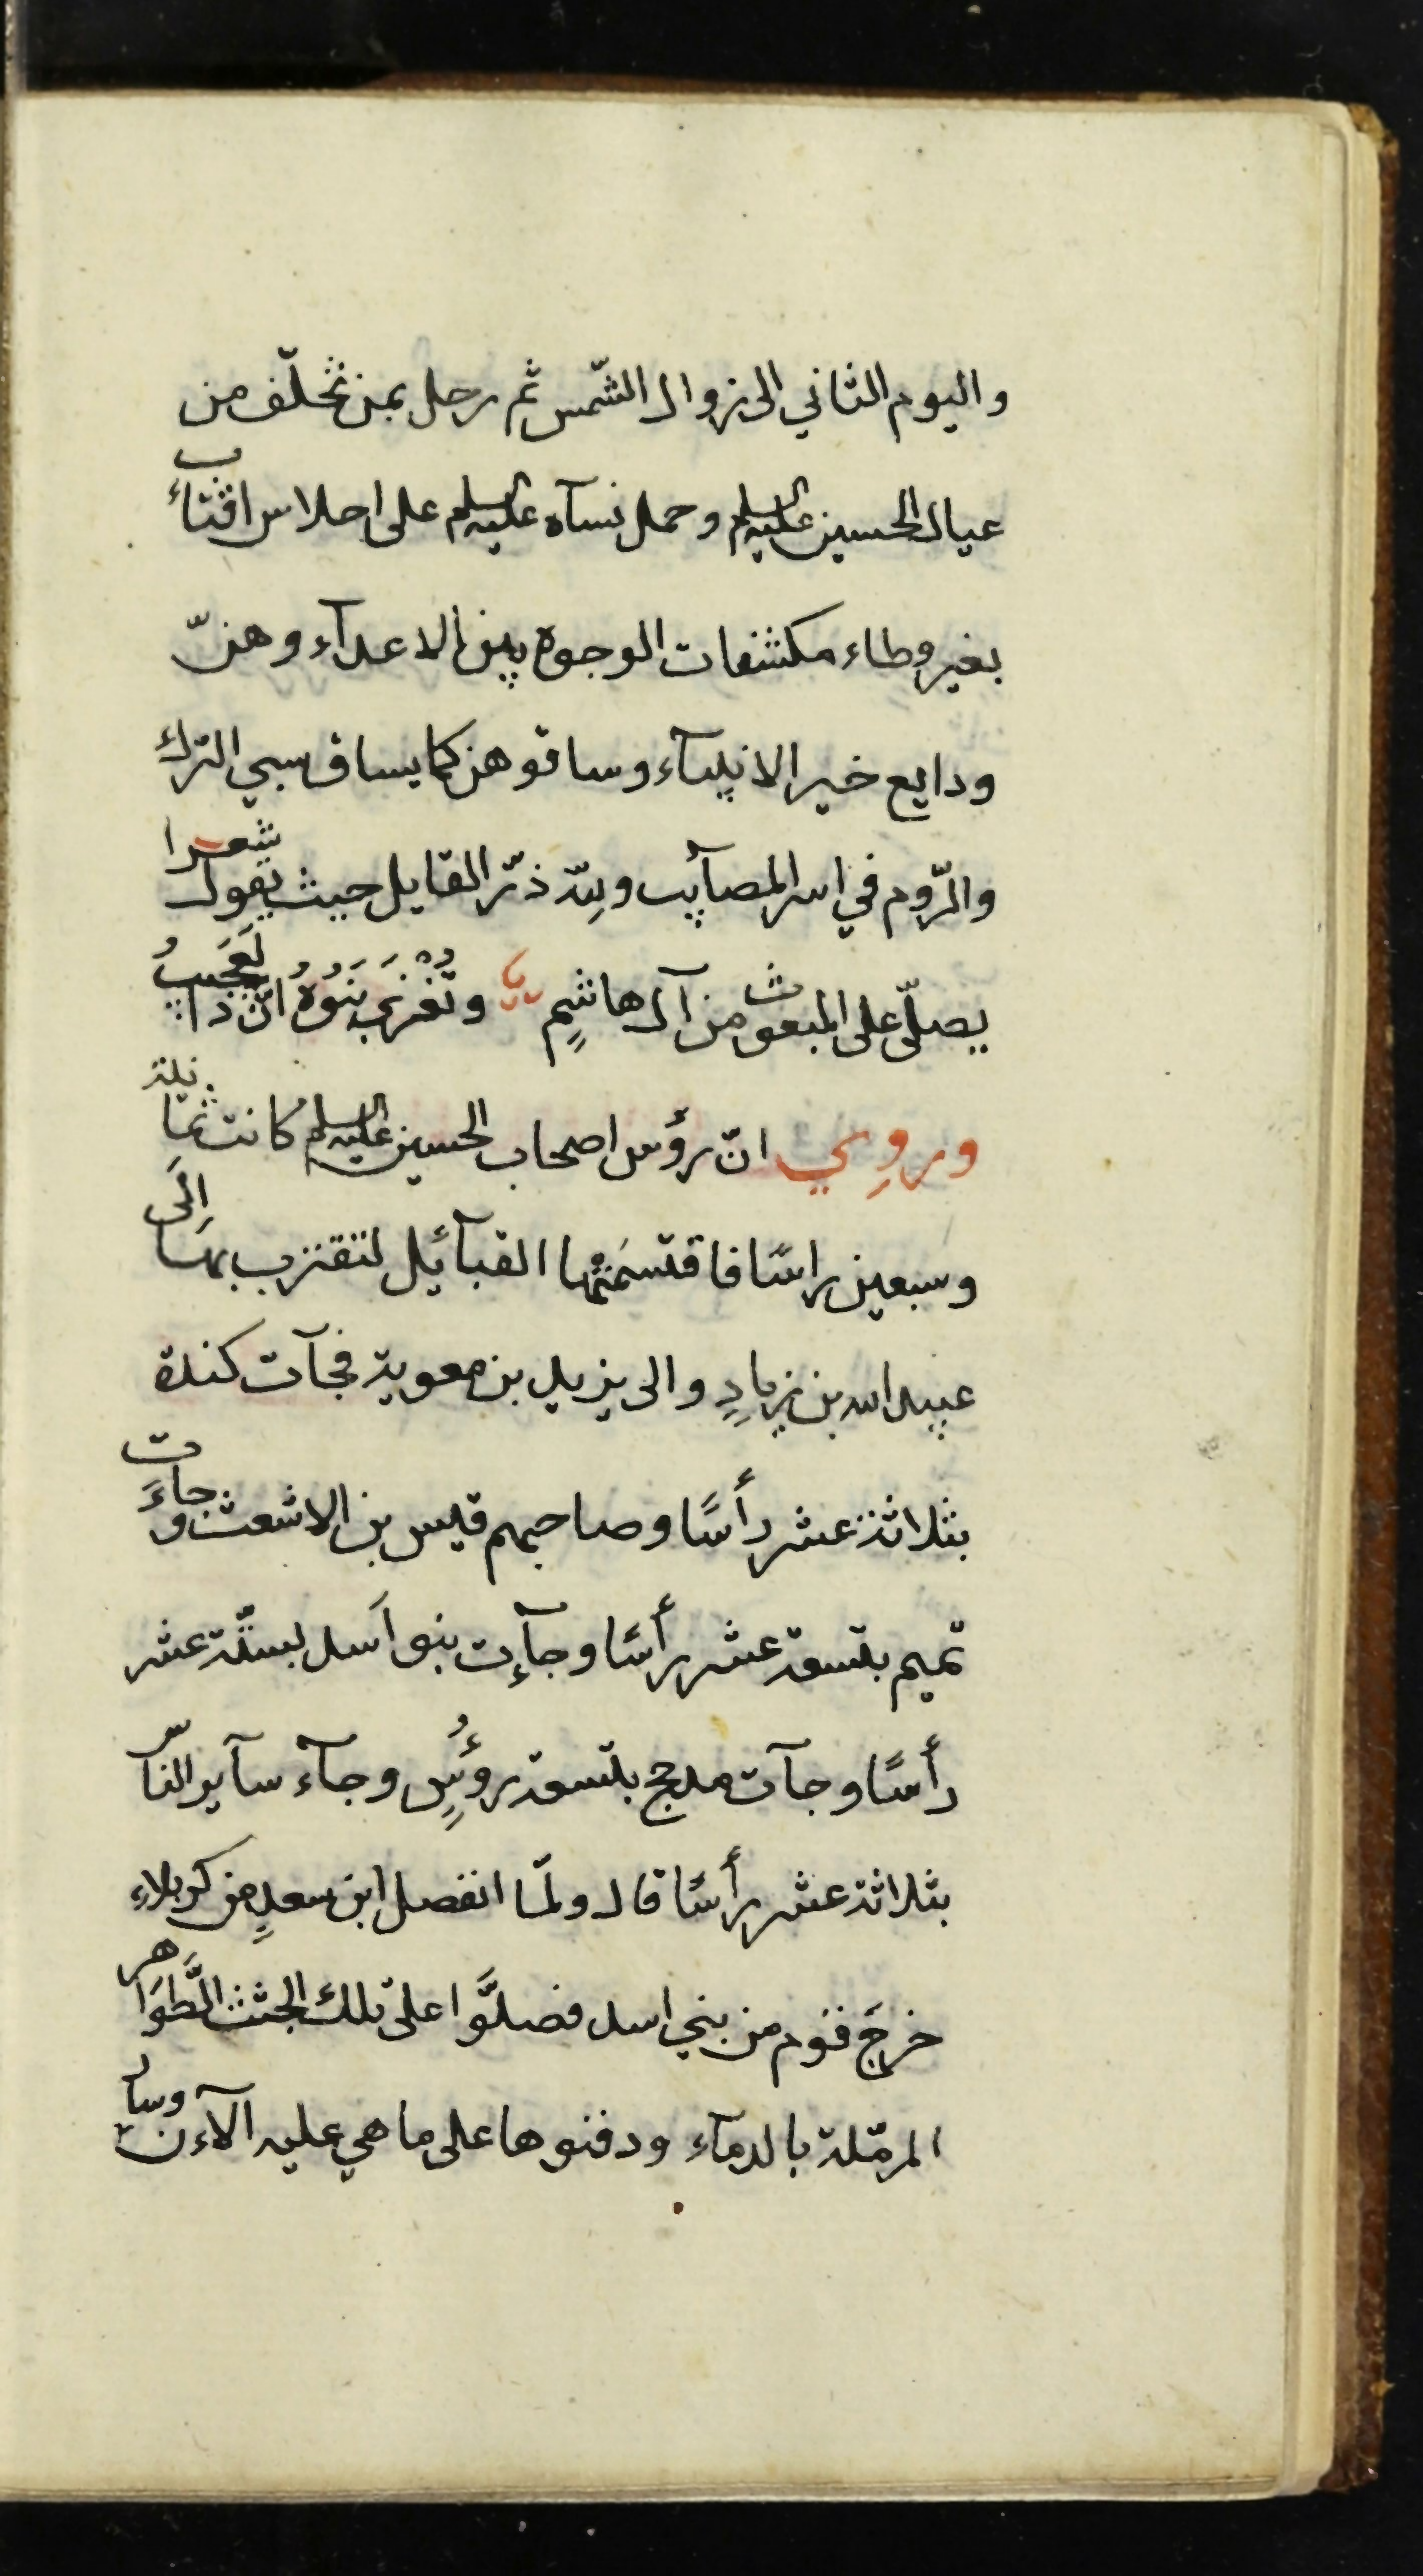 واليوم الثاني الى زوال الشّمس ثم رحل بمن تخلّف من
عيال الحسين عليه السلم وحمل نسآه عليه السلم على احلاس اقتاب
بغير وطاء مكشفات الوجوه بين الاعدآء وهنّ
ودايع خير الانبيآء وساقوهن كما يساق سبي الترك
والرّوم في اسر المصآيب ولله ذرّ القايل حيث يقول شعرا
يصلّى على المبعوث من آل هاشمٍ وتُغْزَى بَنَوُهُ انّ ذا لَعَجَيبُ
وروِي انّ رؤس اصحاب الحسين عليه السلم كانت ثمانية
وسبعين راسًا فاقتسَمَتْها القبآئل لتقترب بها اِلَى
عبيد الله بن زيادٍ والى يزيد بن معوية فجآت كندة
بثلاثة عشر رأسًا وصاحبهم قيس بن الاشعث وجاءَت
تميم بتسعة عشر رأسًا وجآءت بنو اَسد بستّة عشر
رأسًا وجآت مدحج بتسعة رؤُسٍ وجآء سآير النّاس
بثلاثة عشر رأسًا قال ولمّا انفصل ابن سعدٍ من كربلاء
خرجَ قوم من بني اسد فصلَّوا على تلك الجثث الطَّوَاهر
المرمّلة بالدمآء ودفنوها على ما هي عليه الآءن وسار